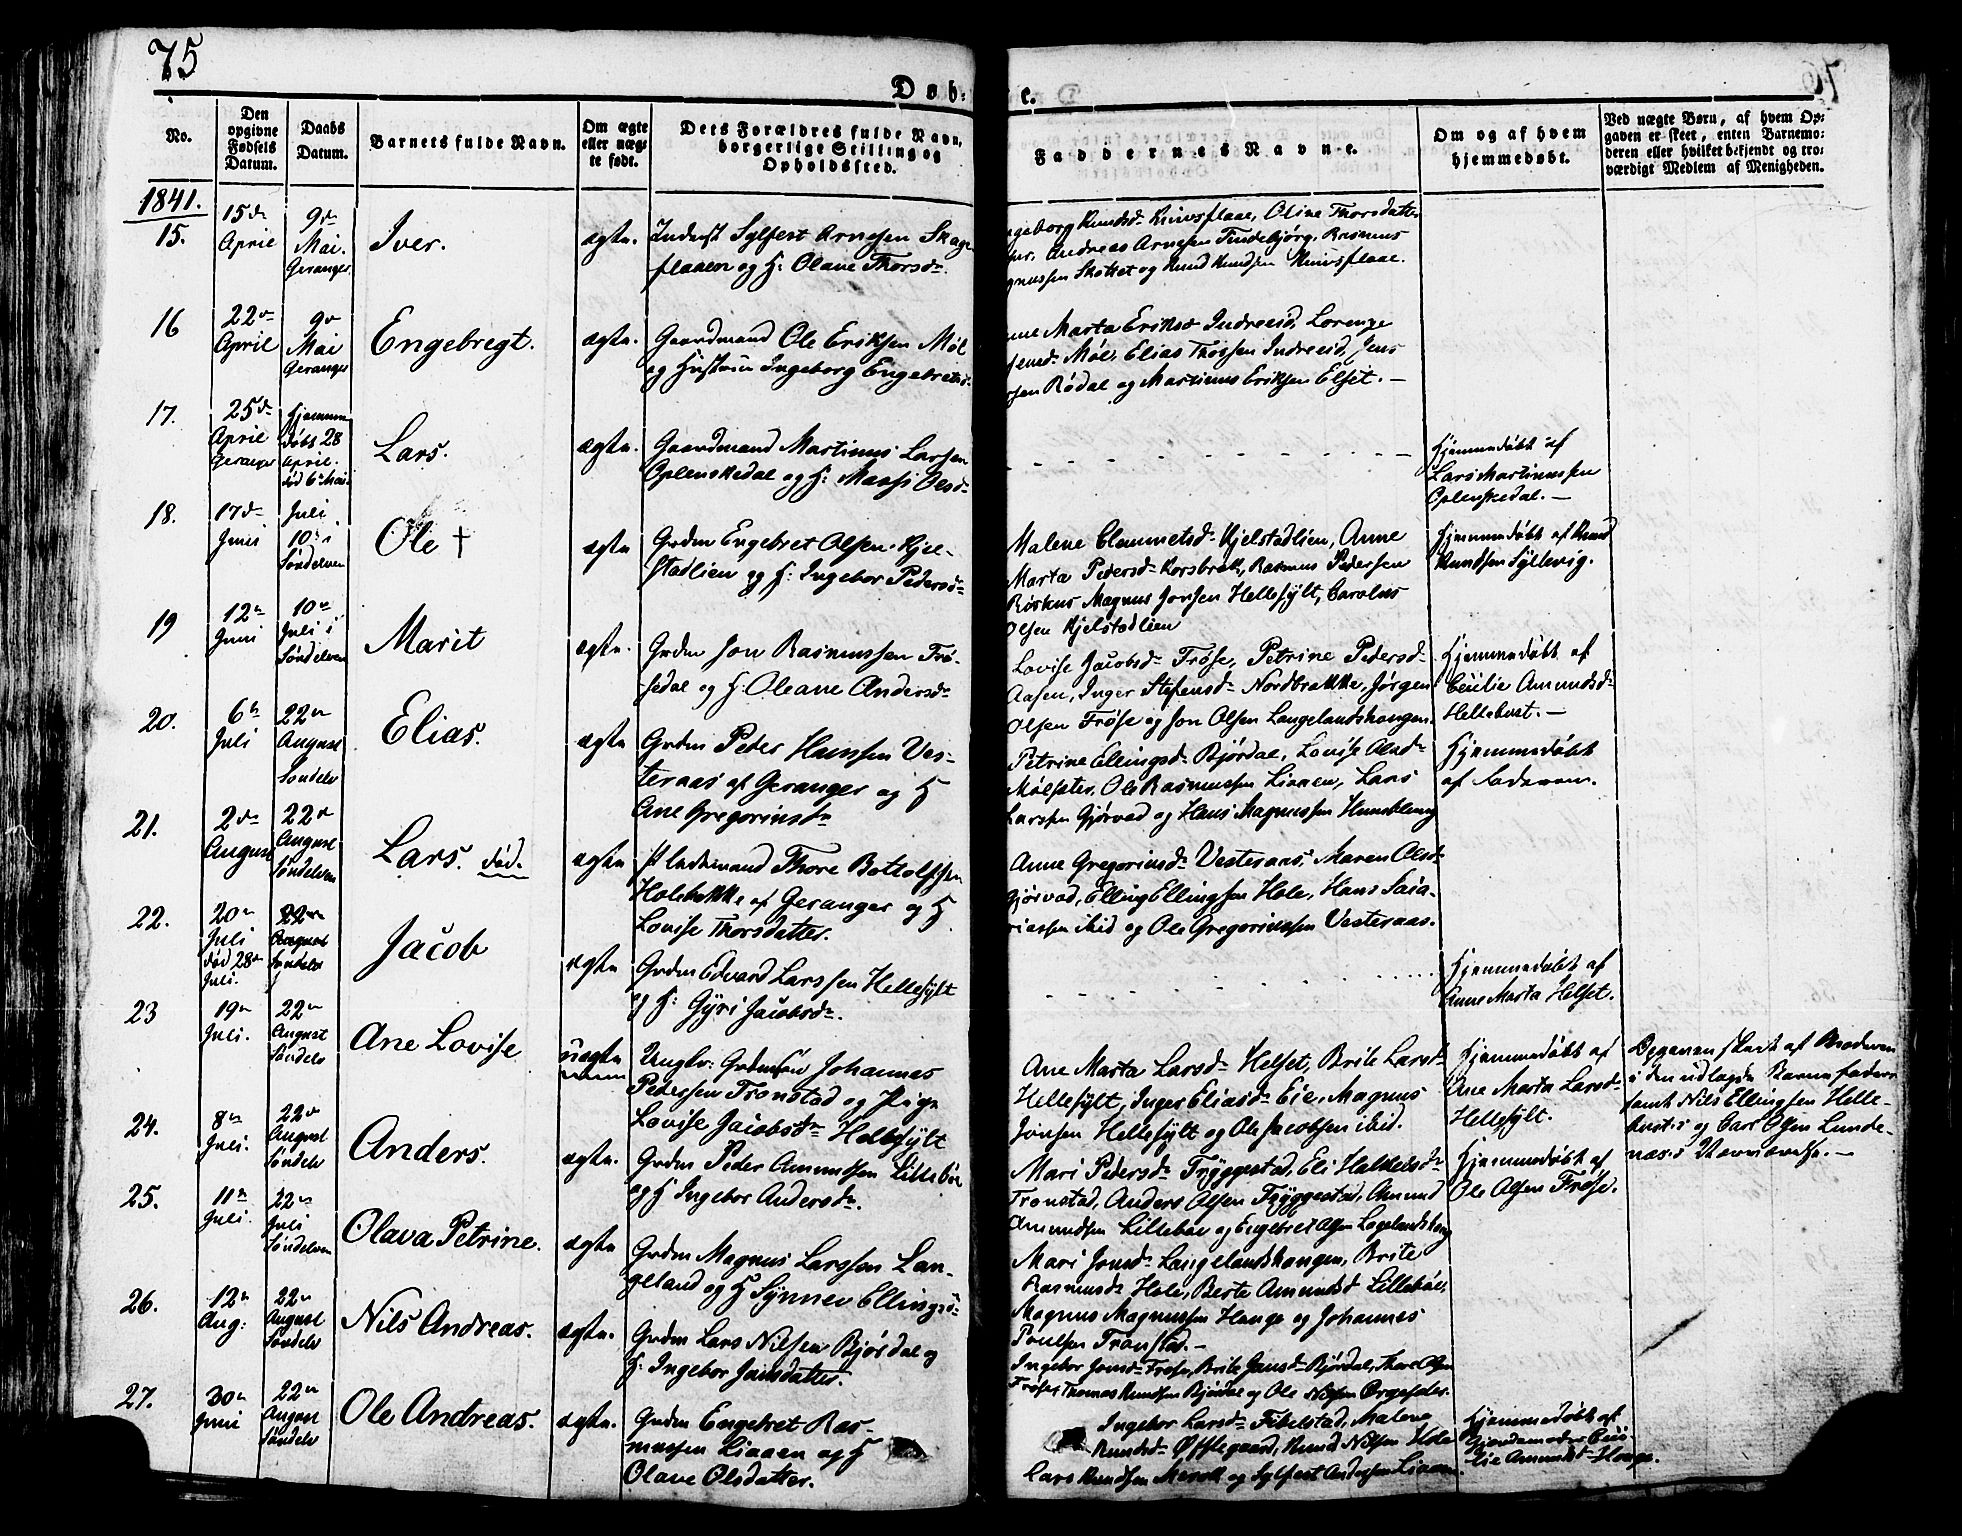 75
76
Døb-
te.
No.
Den opgivne Fødsels Datum.
Daabs Datum.
Barnets fulde Navn.
Om ægte eller uægte født.
Dets Forældres fulde Navn, borgerlige Stilling og Opholdssted.
Faddernes Navne.
Om og af hvem hjemmedøbt.
Ved uægte Børn, af hvem Opgaven er skeet, enten Barnemoderen eller hvilket bekjendt og troværdigt Medlem af Menigheden.
1841.
15.
15de April
9de Mai. Geranger
Iver.
ægte.
Inderst Sylfest Arnesen Skageflaaen og H: Olave Thorsd.
Knudsd. Knivsflaae, Oline Thorsdatter
Andreas Arnesen Tindebjørg, Rasmus
Skottet og Knud Knudsen Knivsflaae.
16
22de April
9de Mai Geranger
Engebregt.
ægte.
Gaardmand Ole Eriksen Møl
og Hustru Ingeborg Engebretsd.
Marta Eriksd Indreeid, Lorense
Møl, Elias Indreeid, Jens
Rødal og Martinus Eriksen Elset. —
17.
25de April Geranger
Hjemmedøbt 28 April. død 6 Mai
Lars.
ægte.
Gaardmand Martinus Larsen
Oplenskedal og H: Olsd.
Hjemmedøbt af
Lars Martinussen
Oplenskedal. —
18.
17de Juni
Juli 10de i Søndelven
Ole †
ægte
Grdm Engebret Olsen Kjelstadlien og H: Ingebor Pedersd.
Malene Clemmetsd. Kjelstadlien, Anne
Marta Pedersd. Korsbrek, Rasmus Pedersen
Magnus Jonsen Hellesylt, Carolus
Olsen Kjelstadlien
Hjemmedøbt af Knud
Knudsen Syltevig.
19
12te Juni
10de Juli i Søndelven
Marit
ægte.
Grdm Jon Rasmussen Frøsedal og H: Oleane Andersd.
Lovise Jacobsd. Frøse, Petrine Pedersd.
Aasen, Inger Stefensd. Nordbrekke, Jørgen
Olsen Frøse og Jon Olsen Langelandshaugen.
Hjemmedøbt af
Amundsd.
—
20.
6te Juli
22de August Søndelv
Elias.
ægte
Grdm Peder Hanssen Vesteraas af Geranger og H
Ane Gregoriusd.
Petrine Ellingsd. Bjørdal, Lovise Olsd.
Ole Rasmussen Liaaen, Lars
Larssen Gjørvad og Hans Magnussen
Hjemmedøbt
af Faderen.
21.
2de August
22de August Søndelven
Lars. død.
ægte
Thore Bottolfsen
Holebakke af Geranger og H
Lovise Thorsdatter.
Anne Gregoriusd. Vesteraas, Maren Olsd.
Gjørvad, Elling Ellingsen Hole, Hans
ibid og Ole Gregoriussen Vesteraas.
22.
20de Juli død 28de Juli.
22de August Søndelv
Jacob
ægte
Grdm Edvard Larssen Hellesylt
og H: Gyri Jacobsd.
Hjemmedøbt af
Anne Marta Helset.
23
19de Juli.
22de August Søndelv
Ane Lovise
uægte
Ungkr: Johannes
Pederssen Tronstad og Pige
Lovise Jacobsd. Hellesylt
Ane Marta Larsd. Helset, Brite Larsd.
Hellesylt, Inger Eliasd. Eie, Magnus
Jonsen Hellesylt og Ole Jacobsen ibid.
Hjemmedøbt af
Ane Marta Larsd.
Hellesylt.
Opgaven skeet af Moderen
den udlagde Barnefader
samt Nils Ellingsen
og Lars Olsen
—
24.
8de Juli.
22de August Søndelv
Anders.
ægte.
Grdm Peder Amundsen Lillebøe
og H Ingebor Andersd.
Mari Pedersd. Tryggestad, Eli
Tronstad, Anders Olsen Tryggestad, Amund
Amundsen Lillebøe og Engebret Olsen
Hjemmedøbt af
Ole Olsen Frøse.
25.
11te Juli.
22de Juli Søndelven
Olava Petrine.
ægte
Grdm Magnus Larssen Langeland og H Synnev Ellingsd.
Mari Jonsd. Langelandshaugen, Brite
Rasmusd. Hole, Berte Amundsd Lillebøe,
Magnus Magnussen Hauge og Johannes
Poulsen Tronstad. —
26.
12te Aug:
22de August Søndelv
Nils Andreas.
ægte.
Grdm Lars Nilsen Bjørdal og
H: Ingebor Jonsdatter.
Ingebor Jonsd. Frøse, Brite Jonsd. Bjørdal, Thore Olsen
Frøse, Thomas Knudsen Bjørdal og Ole Nilsen
27.
30te Juni
22de August Søndelv
Ole Andreas.
ægte.
Grdm Engebret Rasmussen Liaaen og H
Olave Olsdatter.
Ingebor Larsd. Fibelstad, Malene
Knudsd. Knud Nilsen Hole
Lars Knudsen og Sylfest Andersen Liaaen.
Hjemmedøbt af
Amundsd. Hauge.